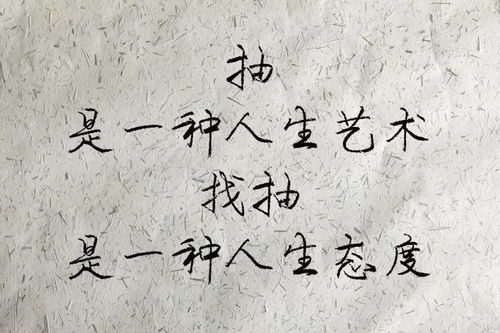 抽
是一种人生艺术
找抽
是一种人生态度